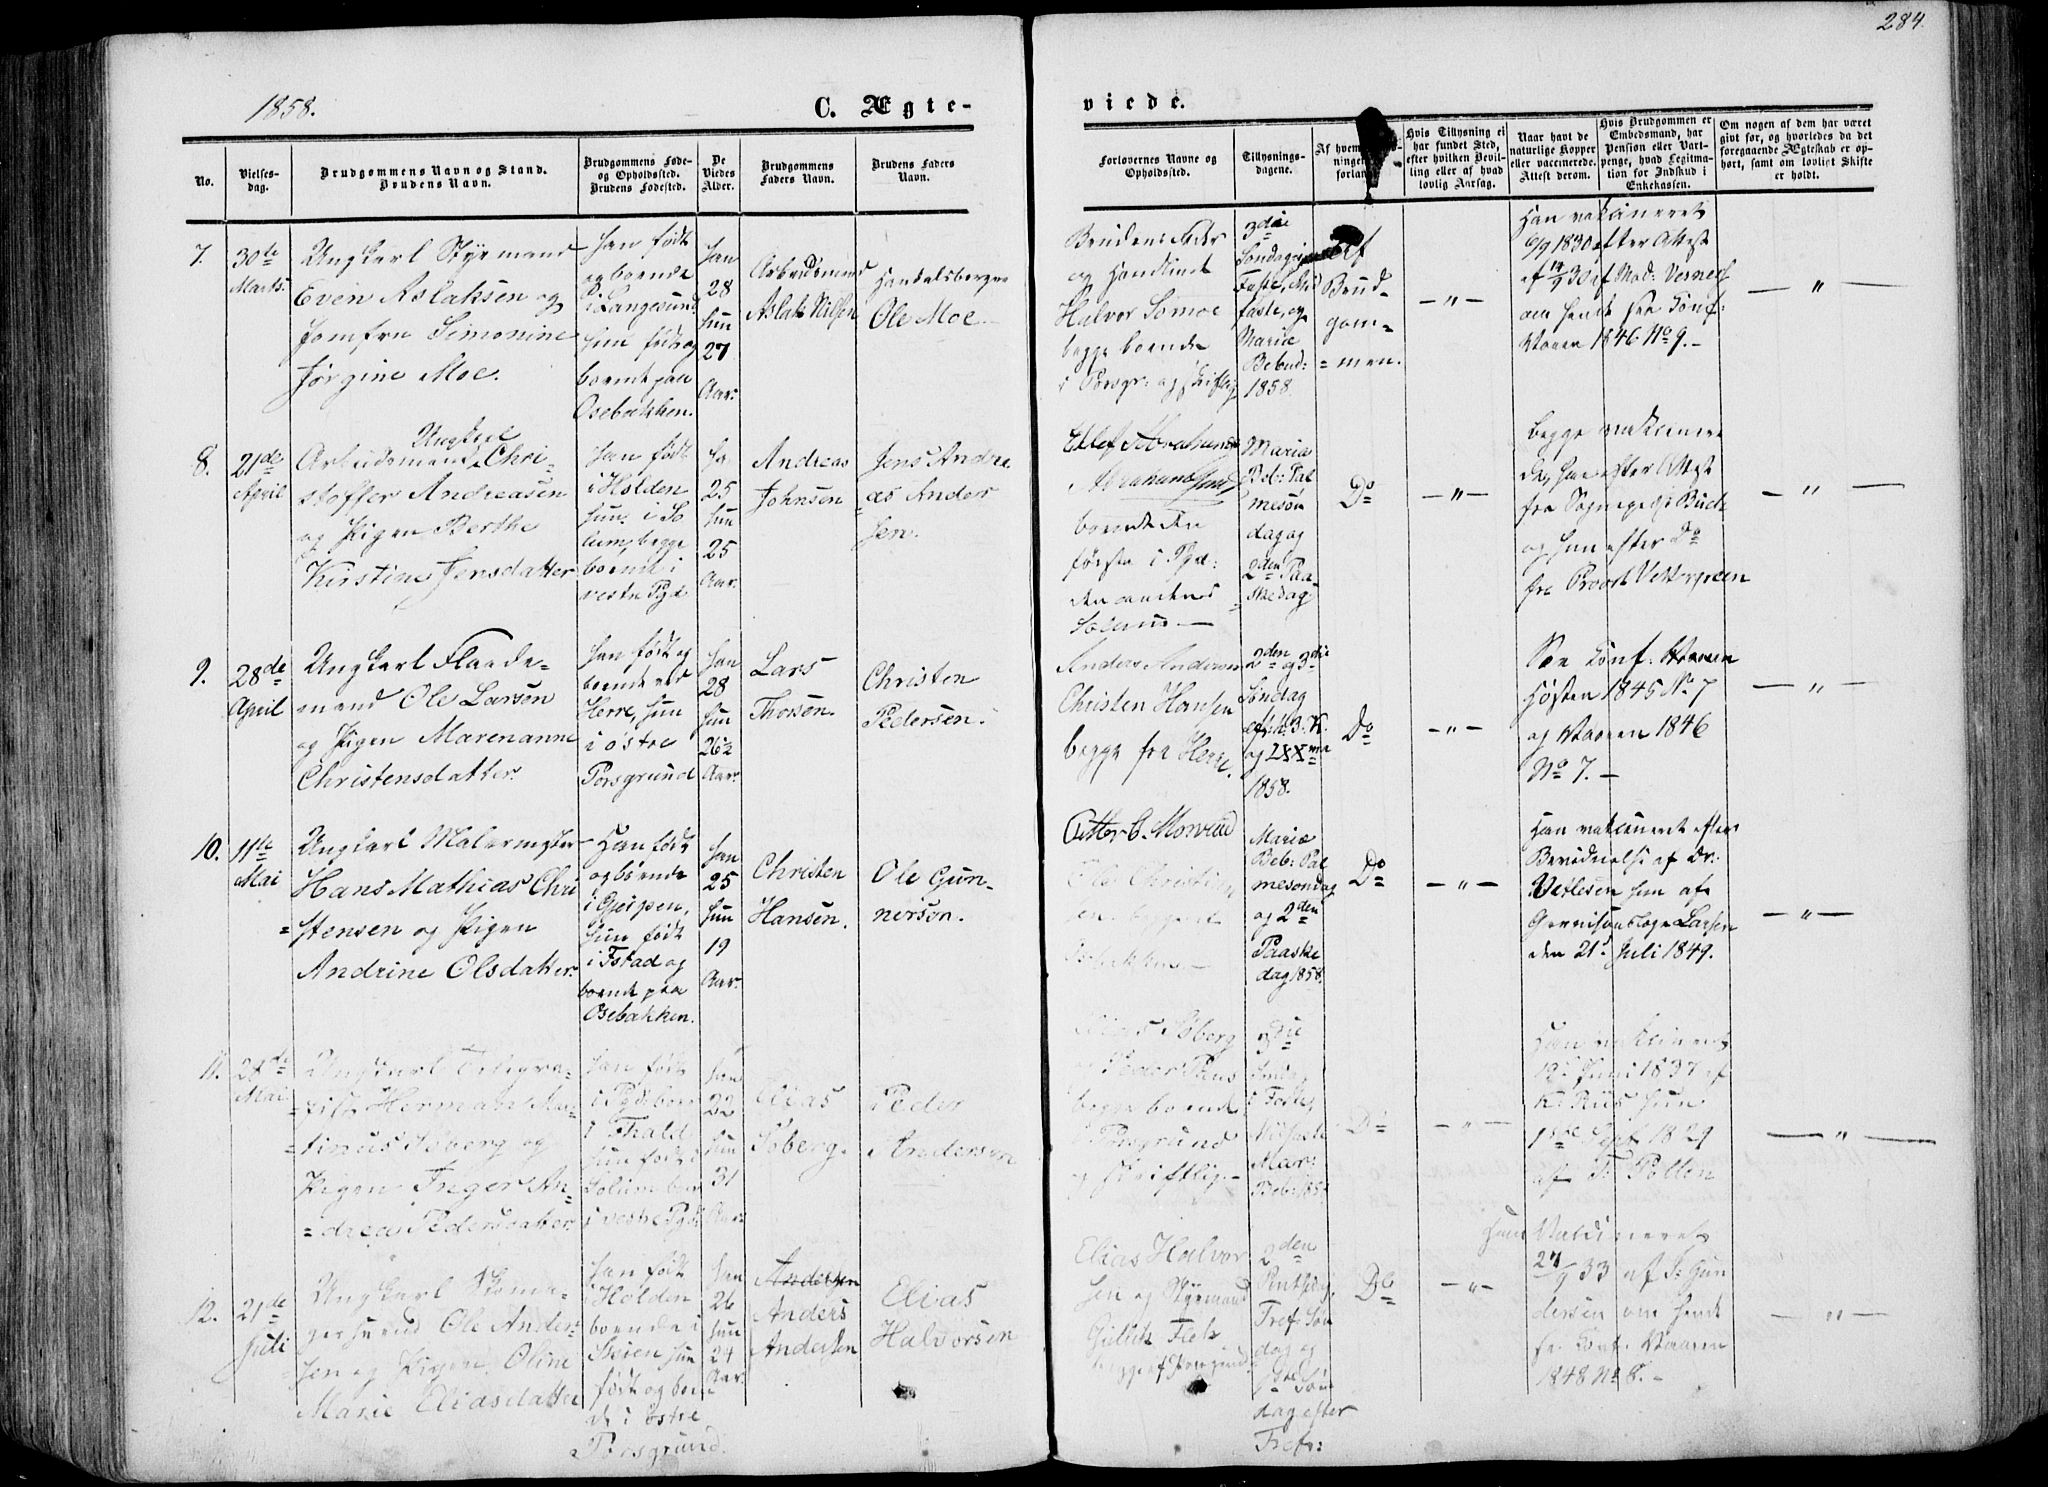 284.
1858.
C. Ægte-
viede.
No.
Vielses-
dag.
Brudgommens Navn og Stand.
Brudens Navn.
Brudgommens Føde-
og Opholdssted.
Brudens Fødested.
De
Viedes
Alder.
Brudgommens
Faders Navn.
Brudens Faders
Navn.
Forlovernes Navne og
Opholdssted.
Tillysnings-
dagene.
Af hvem
ningen
forlangt
Hvis Tillysning ei
har fundet Sted,
efter hvilken Bevil-
ling eller af hvad
lovlig Aarsag.
Naar havt de
naturlige Kopper
eller vaccinerede.
Attest derom.
Hvis Brudgommen er
Embedsmand, har
Pension eller Vart-
penge, hvad Legitma-
tion for Indskud i
Enkekassen.
Om nogen af dem har været
givt før, og hvorledes da det
foregaaende Ægteskab er op-
hørt, samt om lovligt Skifte
er holdt.
7.
30te
Marts.
Ungkarl Styrmand
Even Aslaksen og
Jomfru Simonine
Jørgine Moe.
Han født
og boende
i Langesund,
hun født og
boende paa
Osebakken.
Han
28
hun
27
Aar.
Arbeidsmand
Aslak Nilsen
Handelsborger
Ole Moe
Brudens Fader
og Handlende
Halvor
begge boende
i Porsgr: og skriftlig
3die
Søndag i
Faste, Mid
faste, og
Mariæ
Bebud:
1858.
Af
Brud-
gom-
=men.
— " —
Han vakcineret
6/9 1830 efter Attest
af 14/9 30 af Mad: Verner
om hende see Conf:
Vaaren 1846 No 9.-
— " —
8.
21de
April
Ungkarl
Arbeidsmand Chri-
stoffer Andreasen
og Pigen Berthe
Kirstine Jensdatter
Han født
i Holden
hun i So
lum, begge
boende i
vestre Pgd
Ha.
25
hun
25
Aar.
Andreas
Johnsen
Jens Andre
as Ander
sen.
Ellef Abrahamsen
boende den
første i Pgd:
den anden i
Solum.—
Mariæ
Beb: Pal
mesøn
dag og
2den Paa-
skedag
Do
— " —
Begge vakcinere
de, han efter Attest
fra Sogneprest
og hun efter Do
fra Provst
— " —
9.
28de
April
Ungkarl Flaade-
mand Ole Larsen
og Pigen Marenanne
Christensdatter.
Han født og
boende ved
Herre, hun
i østre
Porsgrund
Han
28
hun
26½
Aar.
Lars
Thorsen.
Christen
Pedersen.
Anders Andersen
Christen Hansen
begge fra Herre.
2den og 3die
Søndag
1858.
Do
— " —
See Conf: Vaaren
Høsten 1845 No 7
og Vaaren 1846
No 7.—
— " —
10.
11te
Mai
Ungkarl Malermester
Hans Mathias Chri
=stensen og Pigen
Andrine Olsdatter.
Han født
og boende
i Gjerpen,
hun født
i Fstad og
boende paa
Osebakken.
Han
25
hun
19
Aar.
Christen
Hansen.
Ole Gun-
nersen.
Petter C. Morveid
Ole Christian
sen
Mariæ
Beb: Pal
mesøndag
og 2den
Paaske
dag 1858.
Do
— " —
Han vakcineret efter
Bevidnelse af Dr:
Vetlesen hun af
Larsen
den 21de Juli 1849.
— " —
11.
28de
Mai
Ungkarl Telegra-
=fist Herman Mar-
=tinus Soberg og
Pigen Inger An-
=drea Pedersdatter.
Han født
i Pgd: boen
i Fhald
hun født i
Solum boer
i vestre Pgd:
Han
22
hun
31
Aar.
Elias
Soberg.
Peder
Andersen
Elias Soberg
Peder
begge boende
i Porsgrund
og skriftlig.-
3die
Sønd:
i Faste,
Midfaste
Mar:
Beb: 1858
Do
— " —
Han vakcineret
19de Juni 1837 af
K. Riis hun
1ste Sept 1829
af T. Pollen
— " —
12.
21de
Juli
Ungkarl Skoma-
gersvend Ole Ander-
sen og Pigen Oline
Marie Eliasdatter
Han født
i Holden
boende i
Skien hun
født og boen
de i østre
Porsgrund.
Han
26
hun
24
Aar.
Andersen
Anders
Andersen
Elias
Halvorsen
Elias Halvor
sen og Styrmand
Gullik Flek
begge af Porsgrund.
2den
Pintsedag,
Tref: Søn
dag og
1ste Søn
dag efter
Tref:
Do
— " —
Han Vakcineret
27/9 33 af S: Gun
dersen om hende
se Conf. Vaaren
1848 No 8.-
— " —